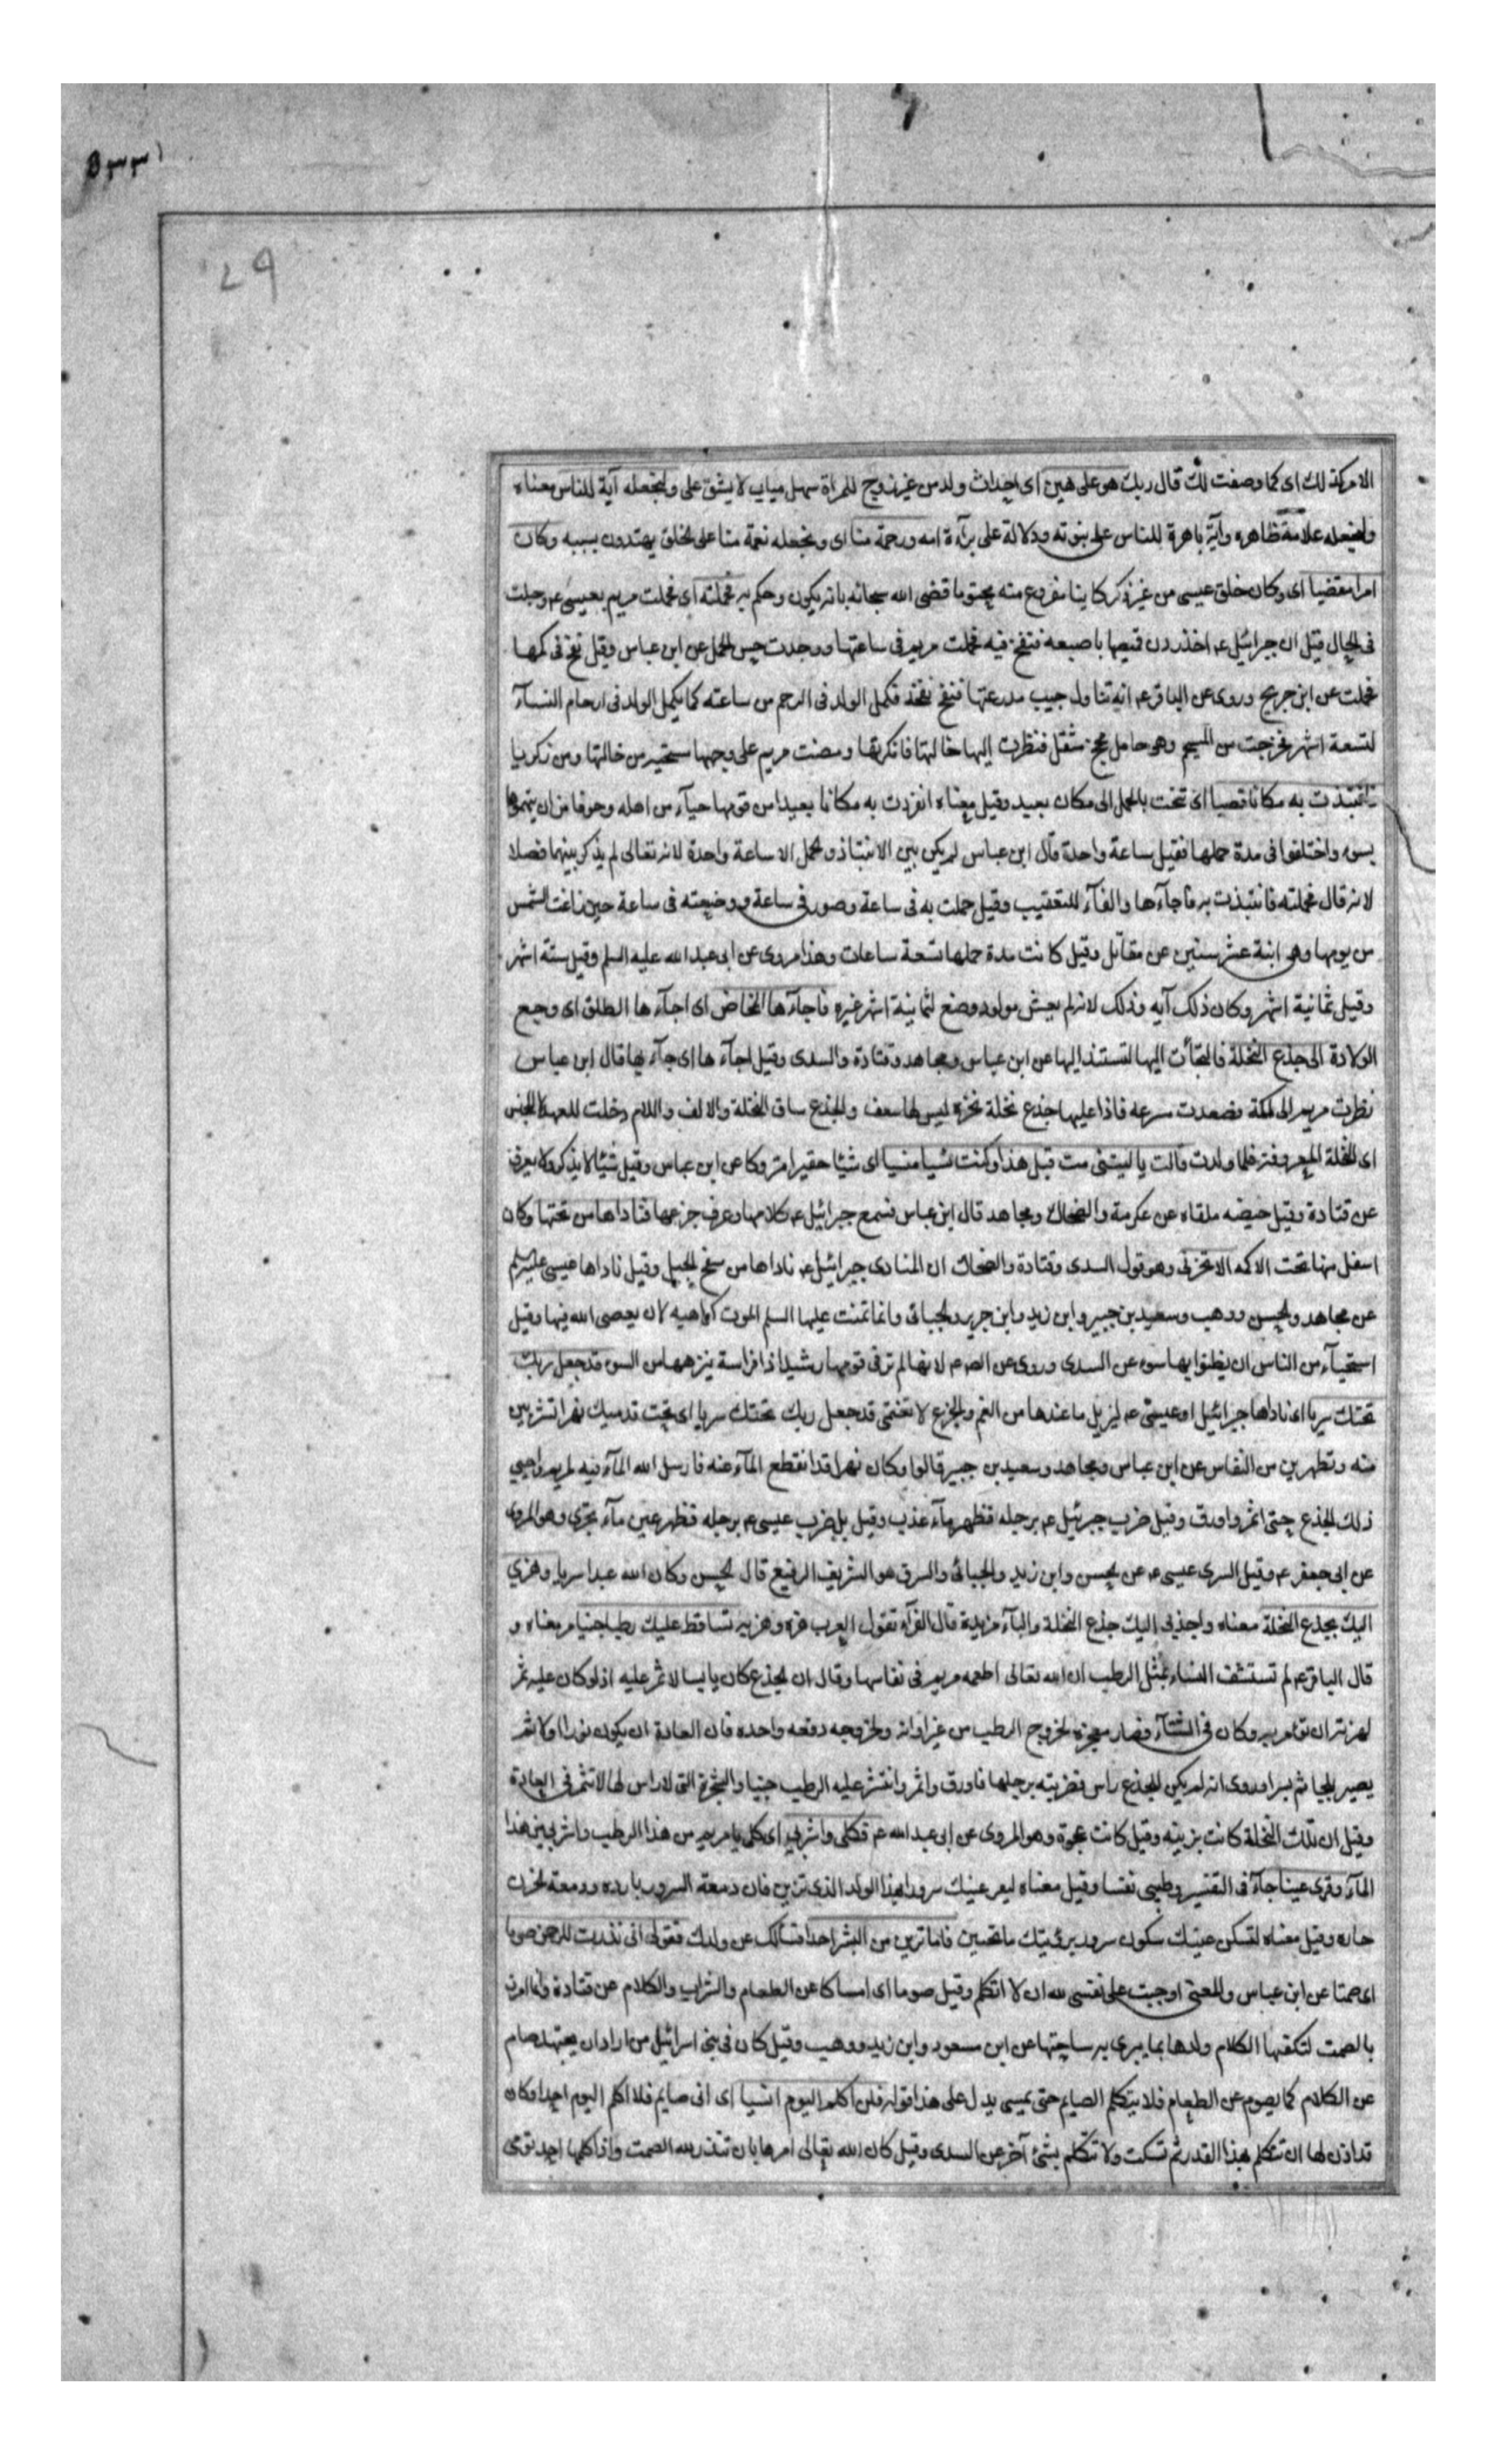 ٥٣٣
٤٩
الامر كذلك اى كما وصفت لك قال ربك هو على هين اى احداث ولد من غير زوج للمراة سهل ميايى لا يشق على ولنجعله آية للناس معناه
ولنجعله علامة ظاهره وآية باهرة للناس على نبوته ودلالة على برآءة امه ورحمة منا اى ونجعله نعمة منا على الخلق يهتدون بسببه وكان
امرا مقضيا اى وكان خلق عيسى من غير ذكر كاينا مفروغ منه محتوما قضى الله سبحانه بانه يكون وحكم به فحملته اى فحملت مريم بعيسى عم وحبلت
فى الحال قيل ان جبرائيل عم اخذ ردن قميصها باصبعه فنفخ فيه فحملت مريم فى ساعتها ووجدت حس الحمل عن ابن عباس وقيل نفخ فى كمها
فحملت عن ابن جريج وروى عن الباقر عم انه تناول جيب مدرعتها فنفخ نفخة فكمل الولد فى الرحم من ساعته كما يكمل الولد فى ارحام النسآء
لتسعة اشهر فخرجت من المسيحم وهى حامل محج مثقل فنظرت اليها خالتها فانكرتها ومضت مريم على وجهها مستحيية من خالتها ومن زكريا
فانتبذت به مكانا قصيا اى تنحت بالحمل الى مكان بعيد وقيل معناه انفردت به مكانا بعيدا من قومها حيآء من اهله وخوفا من ان يتهموها
بسوء واختلفوا فى مدة حملها فقيل ساعة واحدة قال ابن عباس لم يكن بين الانتباذ والحمل الا ساعة واحدة لانه تعالى لم يذكر بينهما فصلا
لانه قال فحملته فانتبذت به فاجآءها والفآء للتعقيب وقيل حملت به فى ساعة وصور فى ساعة ووضعته فى ساعة حين زاغت الشمس
من يومها وهى ابنة عشر سنين عن مقاتل وقيل كانت مدة حملها تسعة ساعات وهذا مروى عن ابى عبد الله عليه السلم وقيل ستة اشهر
وقيل ثمانية اشهر وكان ذلك آيه وذلك لانه لم يعش مولود وضع لثمانية اشهر غيره فاجآءها المخاض اى اجآءها الطلق اى وجع
الولادة الى جذع النخلة فالتجأت اليها لتستند اليها عن ابن عباس ومجاهد وقتادة والسدى وقيل اجآءها اى جآء بها قال ابن عباس
نظرت مريم الى اكمة فصعدت سرعه فاذا عليها جذع نخلة نخره ليس لها سعف والجذع ساق النخلة والالف واللام دخلت للعهد لا للجنس
اى النخلة المعروفة فلما ولدت قالت يا ليتنى مت قبل هذا وكنت نسيا منسيا اى شيئا حقيرا متروكا عن ابن عباس وقيل شيئا لا يذكر ولا يعرف
عن قتادة وقيل حيضه ملقاه عن عكرمة والضحاك ومجاهد قال ابن عباس فسمع جبرائيل عم كلامها وعرف جزعها فناداها من تحتها وكان
اسفل منها تحت الاكمه الا تحزنى وهو قول السدى وقتادة والضحاك ان المنادى جبرائيل عم ناداها من سفح الجبل وقيل ناداها عيسى عليه السلم
عن مجاهد والحسن ووهب وسعيد بن جبير وابن زيد وابن جرير والجبائى وانما تمنت عليها السلم الموت كراهيه لان يعصى الله فيها وقيل
استحيآء من الناس ان يظنوا بها سوء عن السدى وروى عن الصم لانها لم تر فى قومها رشيدا ذا فراسة ينزهها من السوء قد جعل ربك
تحتك سريا اى ناداها جبرائيل او عيسى عم ليزيل ما عندها من الغم والجزع لا تغتمى قد جعل ربك تحتك سريا اى تحت قدميك نهرا تشربين
منه وتطهرين من النفاس عن ابن عباس ومجاهد وسعيد بن جبير قالوا وكان نهرا قد انقطع المآء عنه فارسل الله المآء فيه لمريم واحيى
ذلك الجذع حتى اثمر واورق وقيل ضرب جبرئيل عم برجله فظهر مآء عذب وقيل بل ضرب عيسى عم برجله فظهر عين مآء تجرى وهو المروى
عن ابى جعفر عم وقيل السرى عيسى عم عن الحسن وابن زيد والجبائى والسرى هو الشريف الرفيع قال الحسن وكان الله عبدا سريا وهزي
اليك بجذع النخلة معناه واجذبى اليك جذع النخلة والبآء مزيدة قال الفرآء تقول العرب هزه وهز به تساقط عليك رطبا جنيا مر معناه و
قال الباقر عم لم تستشف النساء بمثل الرطب ان الله تعالى اطعمه مريم فى نفاسها وقال ان الجذع كان يابسا لا ثمر عليه اذ لو كان عليه ثمر
لهزته من غير ان تؤمر به وكان فى الشتآء فصار معجزه لخروج الرطب من غير اوانه ولخروجه دفعه واحده فان العادة ان يكون نورا اولا ثم
يصير بلحا ثم بسرا وروى انه لم يكن للجذع راس فضربته برجلها فاورق واثمر وانتثر عليه الرطب جنيا والشجرة التى لا راس لها لا تثمر فى العادة
وقيل ان تلك النخلة كانت برنيه وقيل كانت عجوة وهو المروى عن ابى عبد الله عم فكلى واشربى اى كلى يا مريم من هذا الرطب واشربى من هذا
المآء وقرى عينا جآء فى التفسير وطيبى نفسا وقيل معناه ليقر عينك سرورا بهذا الولد الذى ترين فان دمعة السرور بارده ودمعة الحزن
حاره وقيل معناه لتسكن عينك سكون سرور برؤيتك ما تحبين فاما ترين من البشر احدا فسألك عن ولدك فقولى انى نذرت للرحمن صوما
اى صمتا عن ابن عباس والمعنى اوجبت على نفسى لله ان لا اتكلم وقيل صوما اى امساكا عن الطعام والشراب والكلام عن قتادة وانما امرت
بالصمت لتكفها الكلام ولدها بما يبرى به ساحتها عن ابن مسعود وابن زيد ووهب وقيل كان فى بنى اسرائيل من اراد ان يجتهد صام
عن الكلام كما يصوم عن الطعام فلا يتكلم الصايم حتى يمسى يدل على هذا قوله فلن اكلم اليوم انسيا اى انى صايم فلا اكلم اليوم احدا وكان
قد اذن لها ان تتكلم بهذا القدر ثم تسكت ولا تتكلم بشئ آخر عن السدى وقيل كان الله تعالى امرها بان تنذر لله الصمت واذا كلمها احد تومى